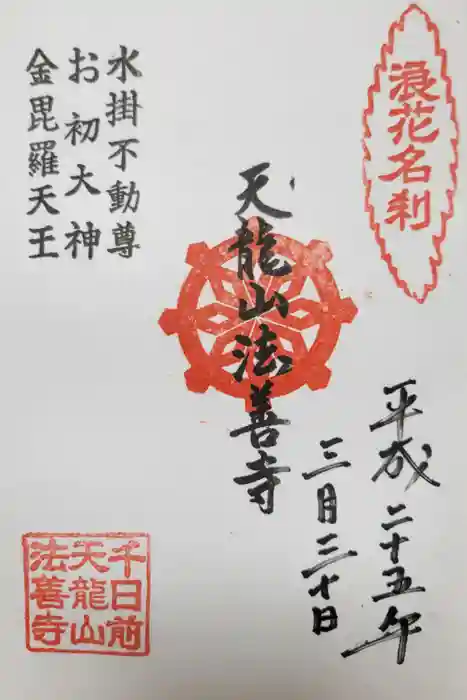 浪花名刹
平成二十五年
三月三十日
天龍山法善寺
水掛不動尊
お初大神
金毘羅天王
千日前
天龍山
法善寺